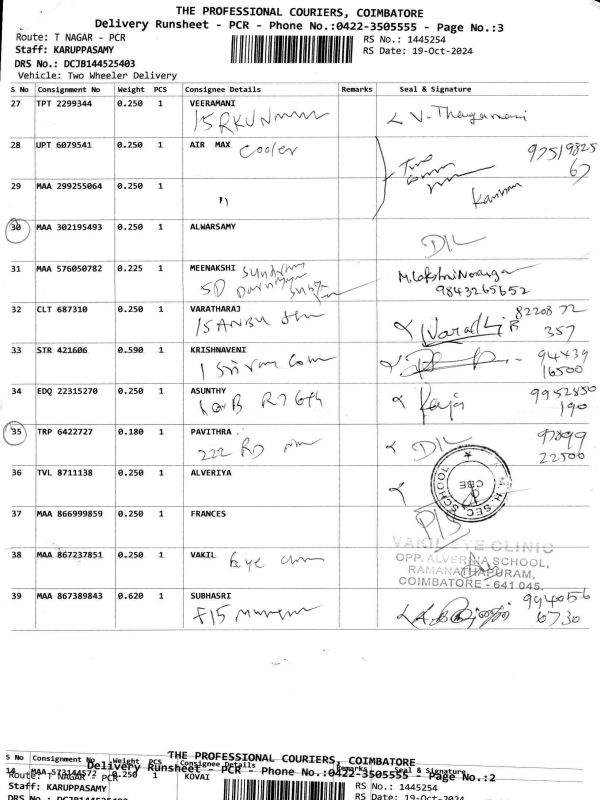 THE PROFESSIONAL COURIERS, COIMBATORE
Delivery Runsheet - PCR - Phone No.:0422-3505555 - Page No.:3
Route: T NAGAR - PCR
RS No.: 1445254
Staff: KARUPPASAMY
RS Date: 19-Oct-2024
DRS No.: DCJB144525403
Vehicle: Two Wheeler Delivery
S No Consignment No Weight PCS Consignee Details Remarks Seal & Signature
27 TPT 2299344 0.250 1 VEERAMANI
V. Thangamani
28 UPT 6079541 0.250 1 AIR MAX Cooler
97519825
67
29 MAA 299255064 0.250 1 "
30 MAA 302195493 0.250 1 ALWARSAMY
D/L
31 MAA 576050782 0.225 1 MEENAKSHI
9843265652
32 CLT 687310 0.250 1 VARATHARAJ
82208 72
357
33 STR 421606 0.590 1 KRISHNAVENI
1 Sri ram
94439
16500
34 EDQ 22315270 0.250 1 ASUNTHY
9952850
190
35 TRP 6422727 0.180 1 PAVITHRA
222 RD
D/L
97899
22500
36 TVL 8711138 0.250 1 ALVERIYA
H. SEC SCHOOL
CBE
37 MAA 866999859 0.250 1 FRANCES
38 MAA 867237851 0.250 1 VAKIL Eye
VAKIL EYE CLINIC
OPP. ALVERNA SCHOOL,
RAMANATHAPURAM,
COIMBATORE - 641 045.
39 MAA 867389843 0.620 1 SUBHASRI
F15
9940156
6730
THE PROFESSIONAL COURIERS, COIMBATORE
S No Consignment No Weight PCS Consignee Details Remarks Seal & Signature
Delivery Runsheet - PCR - Phone No.:0422-3505555 - Page No.:2
14 MAA 573144572 0.250 1 KOVAI
Route: T NAGAR - PCR
RS No.: 1445254
Staff: KARUPPASAMY
RS Date: 19-Oct-2024
DRS No.: DCJB144525403